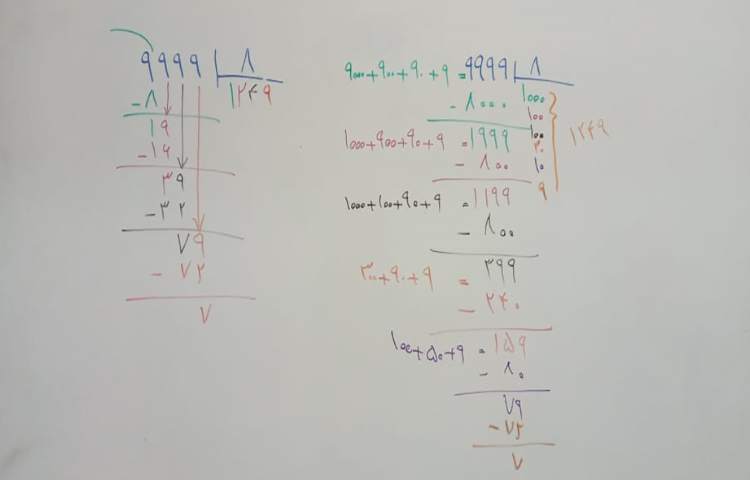 ۹۹۹۹ ۸
۱۲۴۹
-۸
۱۹
-۱۶
۳۹
-۳۲
۷۹
-۷۲
۷
۹۰۰۰+۹۰۰+۹۰+۹=۹۹۹۹ ۸
-۸۰۰۰ ۱۰۰۰
۱۰۰
۱۰۰۰+۹۰۰+۹۰+۹=۱۹۹۹ ۱۰۰ ۱۲۴۹
-۸۰۰ ۳۰
۱۰
۱۰۰۰+۱۰۰+۹۰+۹=۱۱۹۹ ۹
-۸۰۰
۳۰۰+۹۰+۹=۳۹۹
-۲۴۰
۱۰۰+۵۰+۹=۱۵۹
-۸۰
۷۹
-۷۲
۷